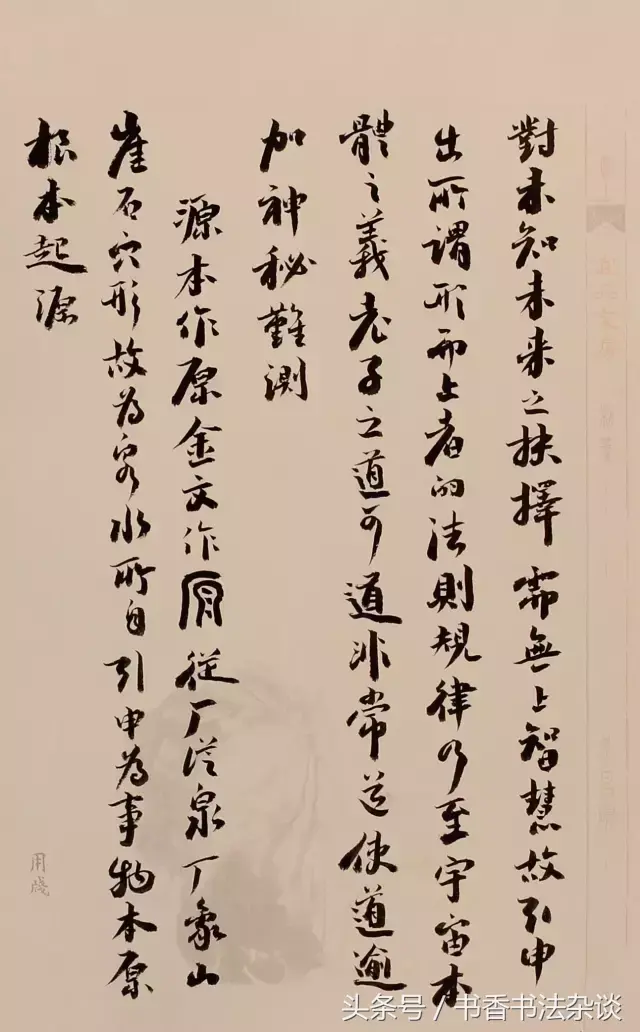 對未知未来之抉擇需無上智慧故引申
出所謂形而上者的法則規律乃至宇宙本
體之義老子之道可道非常道使道逾
加神秘難測
源本作原金文作𠪨從厂从泉厂象山
崖石穴形故為泉水所自引申為事物本原
根本起源
用牋
头条号／书香书法杂谈